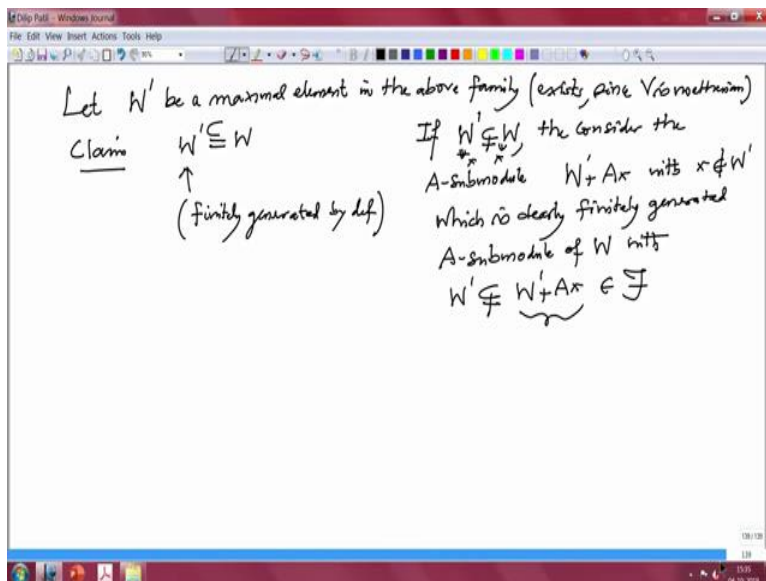 Dilip Patil - Windows Journal
File Edit View Insert Actions Tools Help
Let W' be a maximal element in the above family (exists, since V is noetherian)
Claim W' ⊆ W
↑
(finitely generated by def)
If W' ⊊ W, the consider the
A-submodule W'+Ax with x ∉ W'
which is clearly finitely generated
A-submodule of W with
W' ⊊ W'+Ax ∈ F
139
15:35